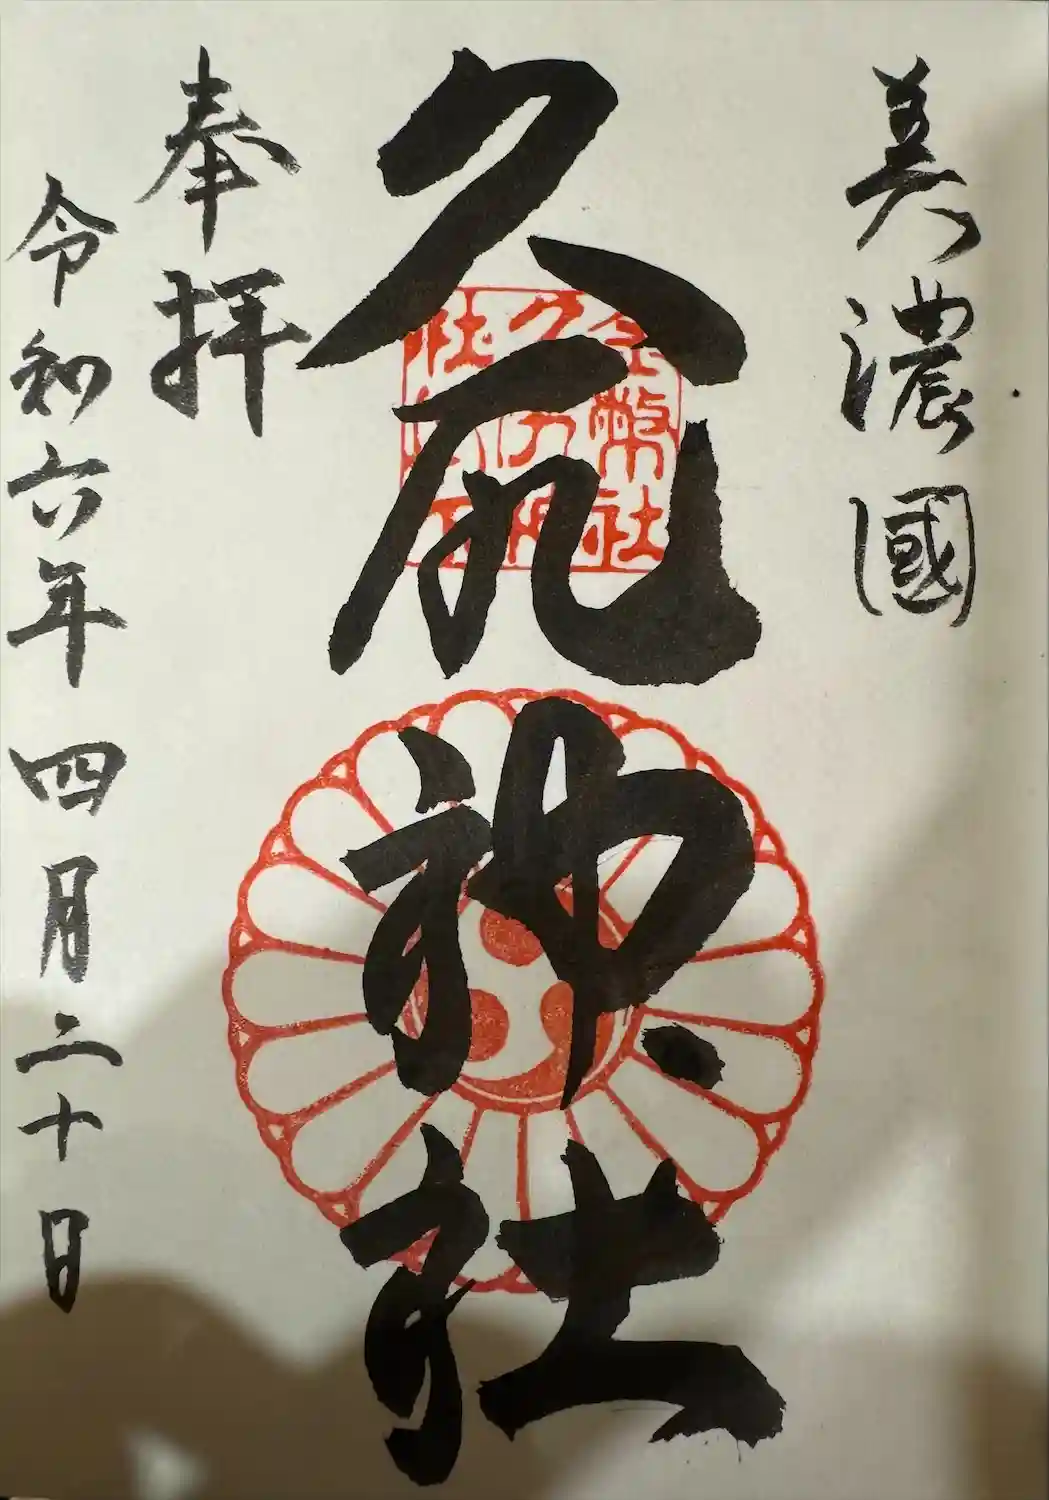 美濃國
久尻神社
金幣社
奉拝
令和六年四月二十日